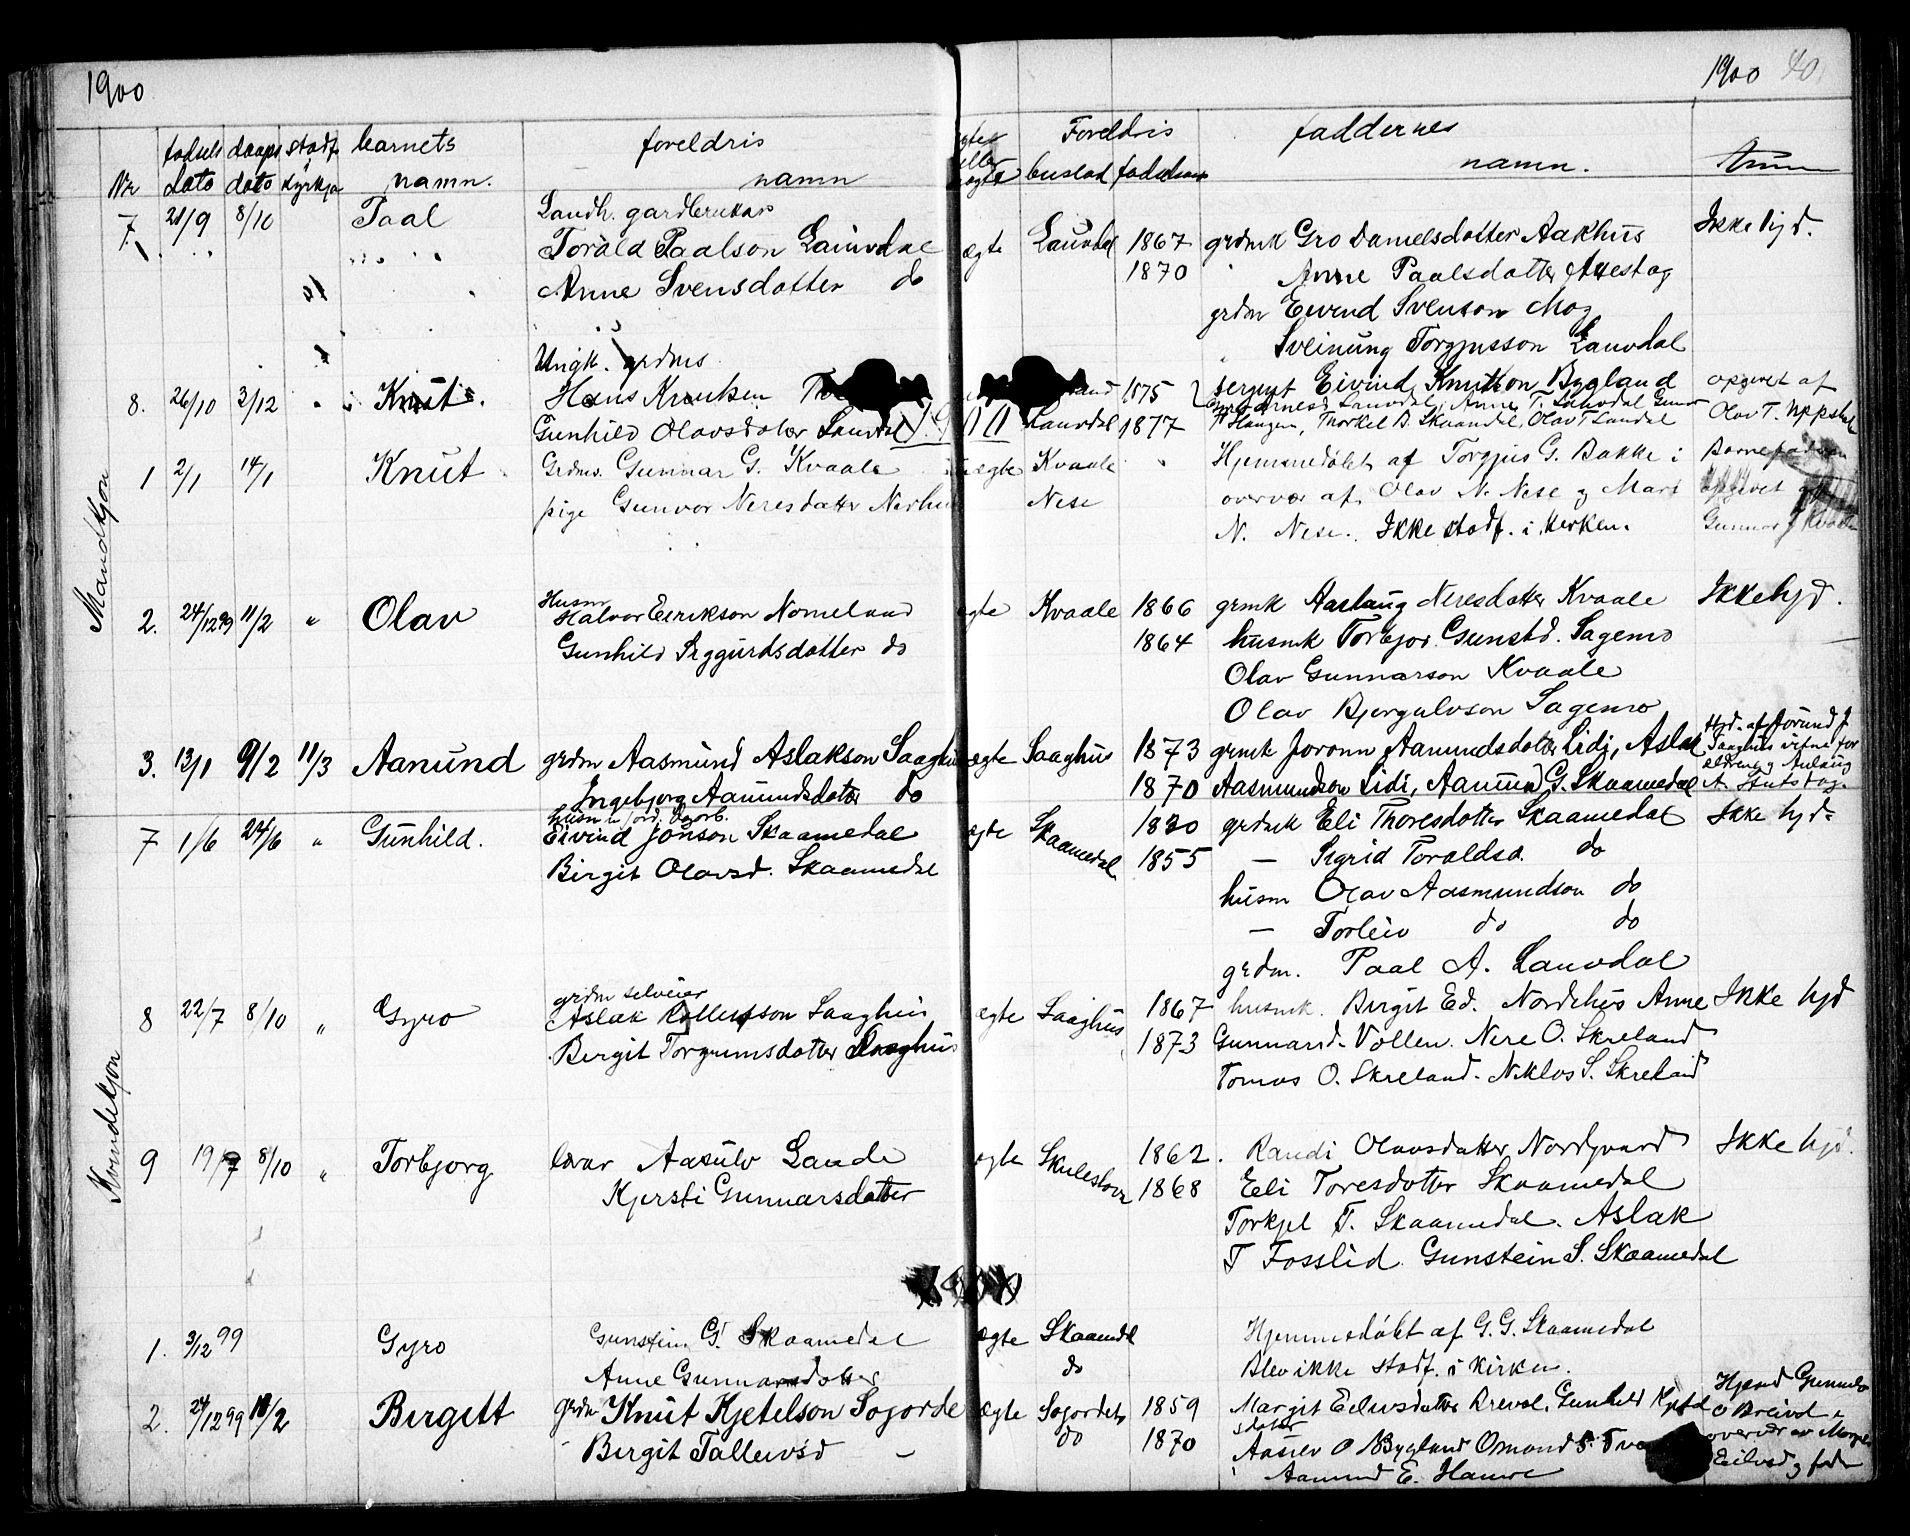 1900
1900 40
fødsels daaps stadf. barnets foreldris ægte Foreldris faddernes
Nr dato dato kyrkja namn. namn eller uægte bustad fødselsaar namn. Anm
7. 21/9 8/10 Paal Landh. gardbrukar
Torald Paalson Lauvdal ægte Lauvdal 1867 grdmk Gro Danielsdotter Aakhus Ikke hjd.
Anne Svensdotter do 1870 Anne Paalsdotter
grdm Eivind Svenson Mog
Sveinung Torgjusson Lauvdal
Ungk. grdms
8. 26/10 3/12 " Knut. Hans Knutsen 1875 sergnt Eivind Knutson Bygland opgivet af
Gunhild Olavsdoter Lauvdal Lauvdal 1877 Haugen, Thorkel B. Skaamdal, Olav T Lauvdal Olav T. Uppstad
Mandkjøn
1 2/1 14/1 Knut Grdms. Gunnar G. Kvaale uægte Kvaale Hjemmedøbt af Torgjus G. Bakke i Barnefaderen
pige Gunvor Neresdatter Nese overvær af Olav N. Nese og Mari opgivet
N. Nese. Ikke stadf. i kirken. Gunnar G Kvaale
2. 24/12 99 11/2 " Olav Husm
Halvor Eirikson Nomeland ægte Kvaale 1866 grmk Aaslaug Neresdatter Kvaale Ikke hjd.
Gunhild Siggurdsdotter do 1864 husmk Torbjør Gunstd. Sagemo
Olav Gunnarson Kvaale
Olav Bjørgulvson Sagemo
3. 13/1 9/2 11/3 Aanund grdm Aasmund Aslakson Saaghus ægte Saaghus 1873 grmk Joronn Aamundsdotter Lidi, Aslak Hjd. af Jorund J Saaghus
Ingebjorg Aanundsdotter do 1870 Aasmundson Lidi, Aanund G. Skaamedal
Kvindekjøn
7 1/6 24/6 " Gunhild. Eivind Jonson Skaamedal ægte Skaamedal 1820 grdmk Eli Thoresdotter Skaamedal Ikke hjd.
Birgit Olavsd. Skaamedal 1855 — Sigrid Toraldsd. do
husm Olav Aasmundson do
— Torleiv do do
grdm. Paal A. Lauvdal
8 22/7 8/10 " Gyro grdm selveier
Aslak Saaghus ægte Saaghus 1867 husmk. Birgit Ed. Nordehus Anne Ikke hjd
Birgit Torgrumsdotter Saaghus 1873 Gunnarsd. Vollen. Nere O. Skreland
Tomas O. Skreland. Niklos S. Skreland
9 19/7 8/10 " Torbjorg lærar Aasulv Lande ægte Skulestova 1862. Randi Olavsdatter Nordgaard Ikke hjd.
Kjersti Gunnarsdotter 1868 Eeli Toresdotter Skaamedal
Torkjel T. Skaamedal. Aslak
T Fosslid. Gunstein S. Skaamedal
1. 3/12 99 Gyro Gunstein G. Skaamedal ægte Skaamdl Hjemmedøbt af G. G. Skaamedal
Anne Gunnarsdotter do Blev ikke stadf. i kirken.
2. 24/12 99 18/2 Birgitt grdm Knut Kjetelson Sogorde ægte Sogordet 1859 Margit Eilivsdatter Gunhild Hjemd Gunnild
Birgit Tallevsd — do 1870 Aaslev O Bygland Osmund overvær av
Aanund E. Eilivsd og